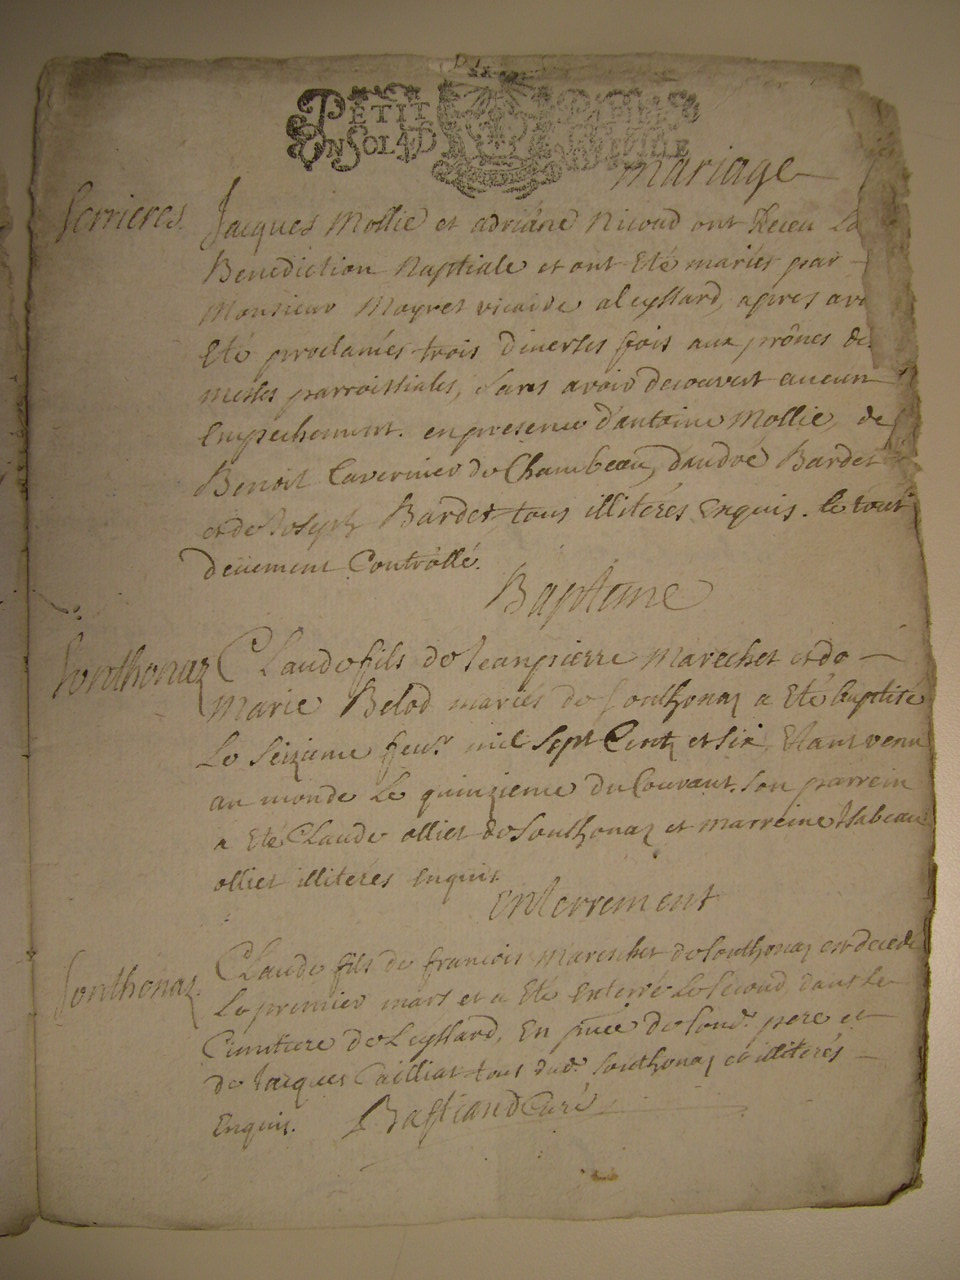 PETIT PAPIER
UN SOL 4 D
mariage
Serrieres. Jacques Mollie et adriane Nicoud ont Receu La
Benediction Naptiale et ont Eté mariés par
Monsieur Moyret vicaire a leyssard, apres avo
Eté proclamés trois diverses fois aux prônes de
messes parroissiales, sans avoir decouvert aucun
Empechement. en presence d'antoine Mollie, de
Benoit Tavernier de Chambeau, d'andré Bardet
et de Joseph Bardet tous illiterés Enquis. le tout
deüement Controllé.
Bapteme
Sonthonaz Claude fils de Jeanpierre Marechet et de
Marie Belod mariés de Sonthonaz a Eté baptisé
Le Seizieme feur. mil Sept Centz et Six, Etant venu
au monde Le quinzieme du Courant. Son parrein
a Eté Claude ollier de Sonthonaz et marreine Isabeau
ollier illiterés Enquis
Enterrement
Sonthonaz. Claude fils de francois Mareschet de Sonthonaz est decedé
Le premier mars et a Eté Enterré Le Second dans Le
Cimitiere de Leyssard, En pnce de Sond. pere et
de Jacques Cailliat tous dud. Sonthonaz et illiterés
Enquis. Bastiand Curé